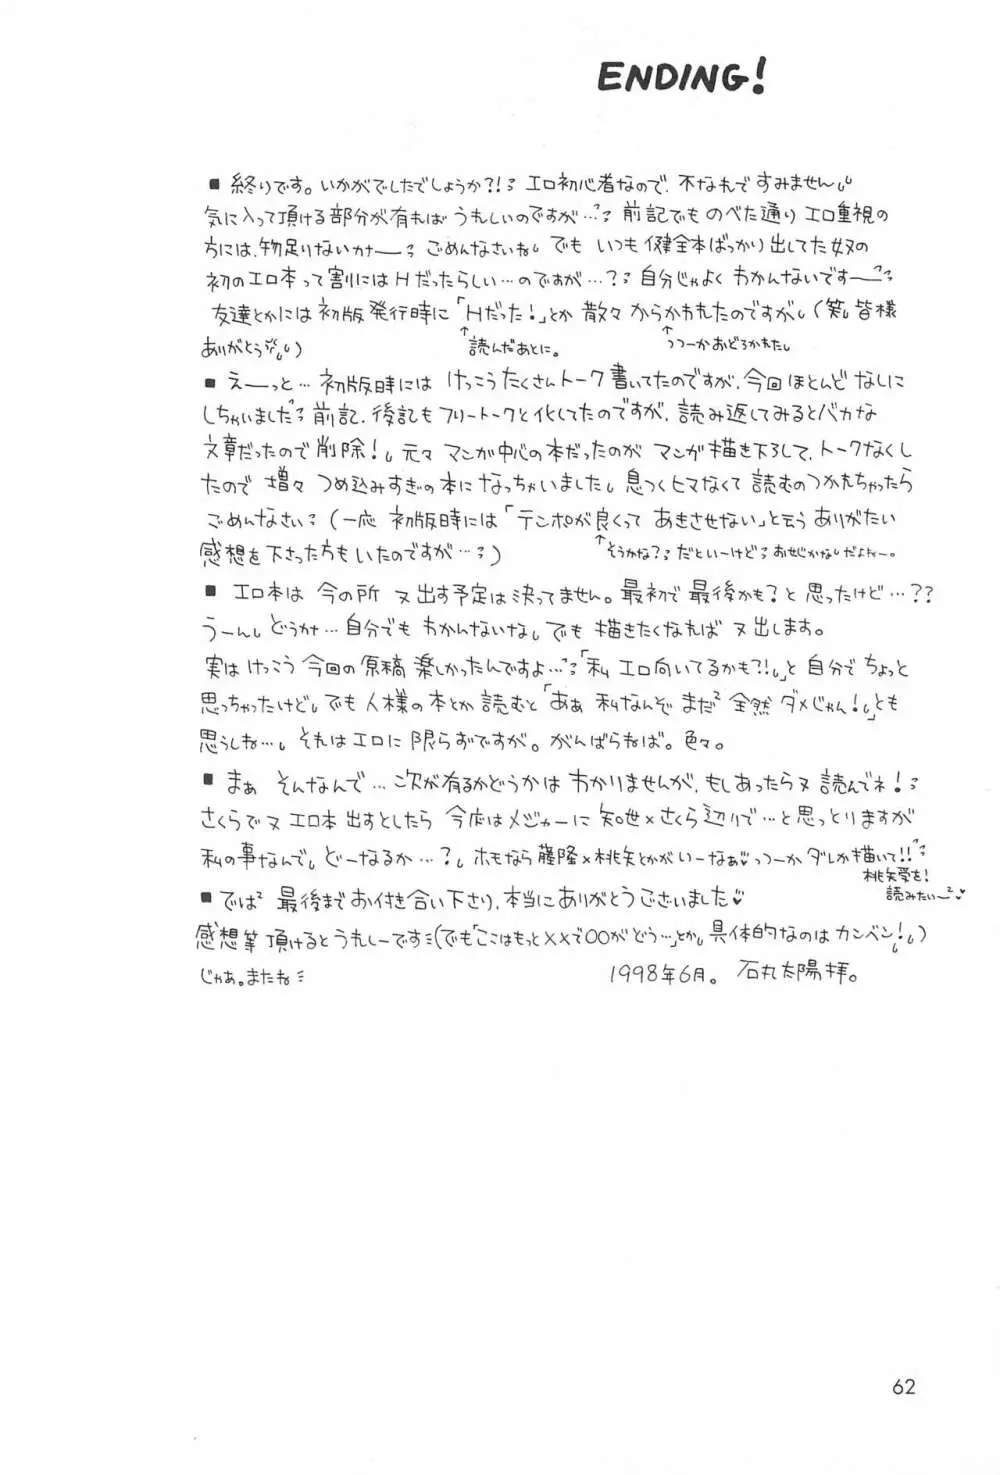 ENDING!
■ 終りです。いかがでしたでしょうか?! エロ初心者なので、不なれですみません
気に入って頂ける部分が有ればうれしいのですが… 前記でものべた通りエロ重視の
方には、物足りないカナー ごめんなさいね でも いつも健全本ばっかり出してた奴の
初のエロ本って割にはHだったらしい…のですが…? 自分じゃよくわかんないですー
友達とかには初版発行時に「Hだった!」とか散々からかわれたのですが (笑) 皆様
ありがとう)
↑読んだあとに。
↑つつーかおどろかれた
■ えーっと… 初版時にはけっこうたくさんトーク書いてたのですが、今回ほとんどなしに
しちゃいました 前記、後記もフリートークと化してたのですが、読み返してみるとバカな
文章だったので削除! 元々マンガ中心の本だったのがマンガ描き下ろして、トークなくし
たので 増々つめ込みすぎの本になっちゃいました 息つくヒマなくて読むのつかれちゃったら
ごめんなさい (一応 初版時には「テンポが良くってあきさせない」と云うありがたい
感想を下さった方もいたのですが…)
↑そうかな? だといーけど おせじかな だよねー。
■ エロ本は今の所 又出す予定は決ってません。最初で最後かも?と思ったけど…??
うーん どうか…自分でもわかんないな でも描きたくなれば又出します。
実はけっこう今回の原稿楽しかったんですよ…「私エロ向いてるかも?!」と自分でちょっと
思っちゃったけど でも人様の本とか読むと「あぁ 私なんぞまだ² 全然ダメじゃん!」とも
思うしね… それはエロに限らずですが。がんばらねば。色々。
■ まぁ そんなんで…次が有るかどうかはわかりませんが、もしあったら又読んでネ!
さくらで又エロ本出すとしたら今度はメジャーに知世×さくら辺りで…と思っとりますが
私の事なんで どーなるか…? ホモなら藤隆×桃矢とかがいーなぁ♡ っつーかダレか描いて!!
桃矢受を!
読みたいー²♡
■ では² 最後までお付き合い下さり、本当にありがとうございました♡
感想等頂けるとうれしーです(でも「ここはもっと××で○○がどう…」とか 具体的なのはカンベン!)
じゃあ。またね
1998年6月。石丸太陽拝。
62